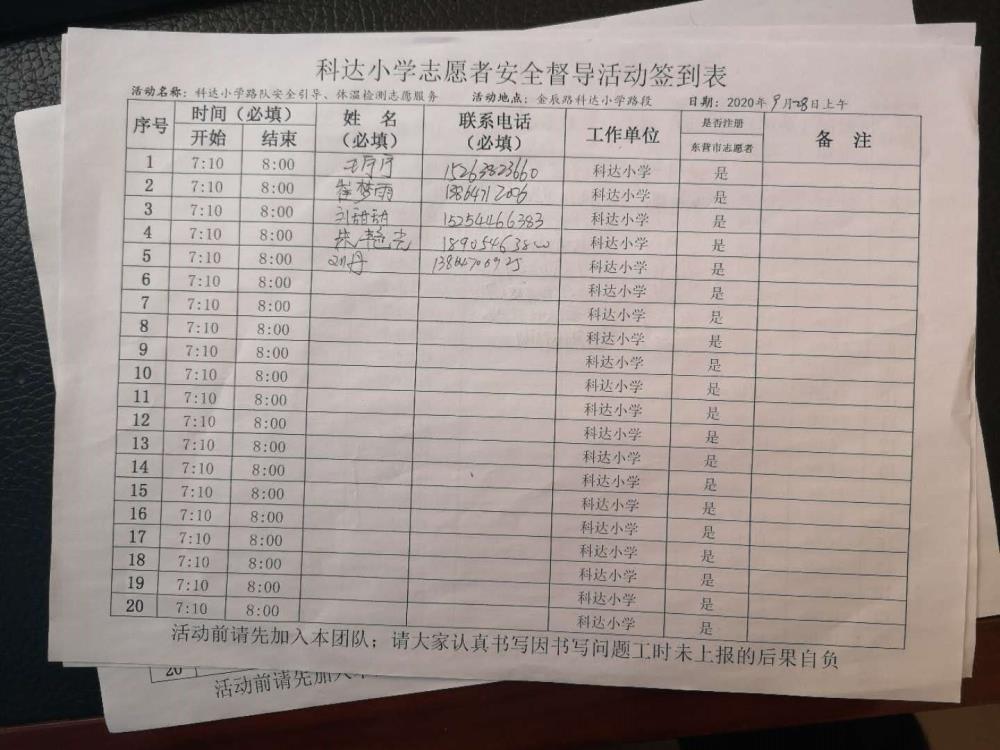 科达小学志愿者安全督导活动签到表
活动名称：科达小学路队安全引导、体温检测志愿服务 活动地点：金辰路科达小学路段 日期：2020年9月28日上午
序号 时间（必填） 姓 名（必填） 联系电话（必填） 工作单位 是否注册 备 注
开始 结束 东营市志愿者
1 7:10 8:00 王丹丹 15263823660 科达小学 是
2 7:10 8:00 崔梦雨 科达小学 是
3 7:10 8:00 刘甜甜 15254466383 科达小学 是
4 7:10 8:00 科达小学 是
5 7:10 8:00 刘丹 科达小学 是
6 7:10 8:00 科达小学 是
7 7:10 8:00 科达小学 是
8 7:10 8:00 科达小学 是
9 7:10 8:00 科达小学 是
10 7:10 8:00 科达小学 是
11 7:10 8:00 科达小学 是
12 7:10 8:00 科达小学 是
13 7:10 8:00 科达小学 是
14 7:10 8:00 科达小学 是
15 7:10 8:00 科达小学 是
16 7:10 8:00 科达小学 是
17 7:10 8:00 科达小学 是
18 7:10 8:00 科达小学 是
19 7:10 8:00 科达小学 是
20 7:10 8:00 科达小学 是
活动前请先加入本团队；请大家认真书写因书写问题工时未上报的后果自负
20
活动前请先加入本